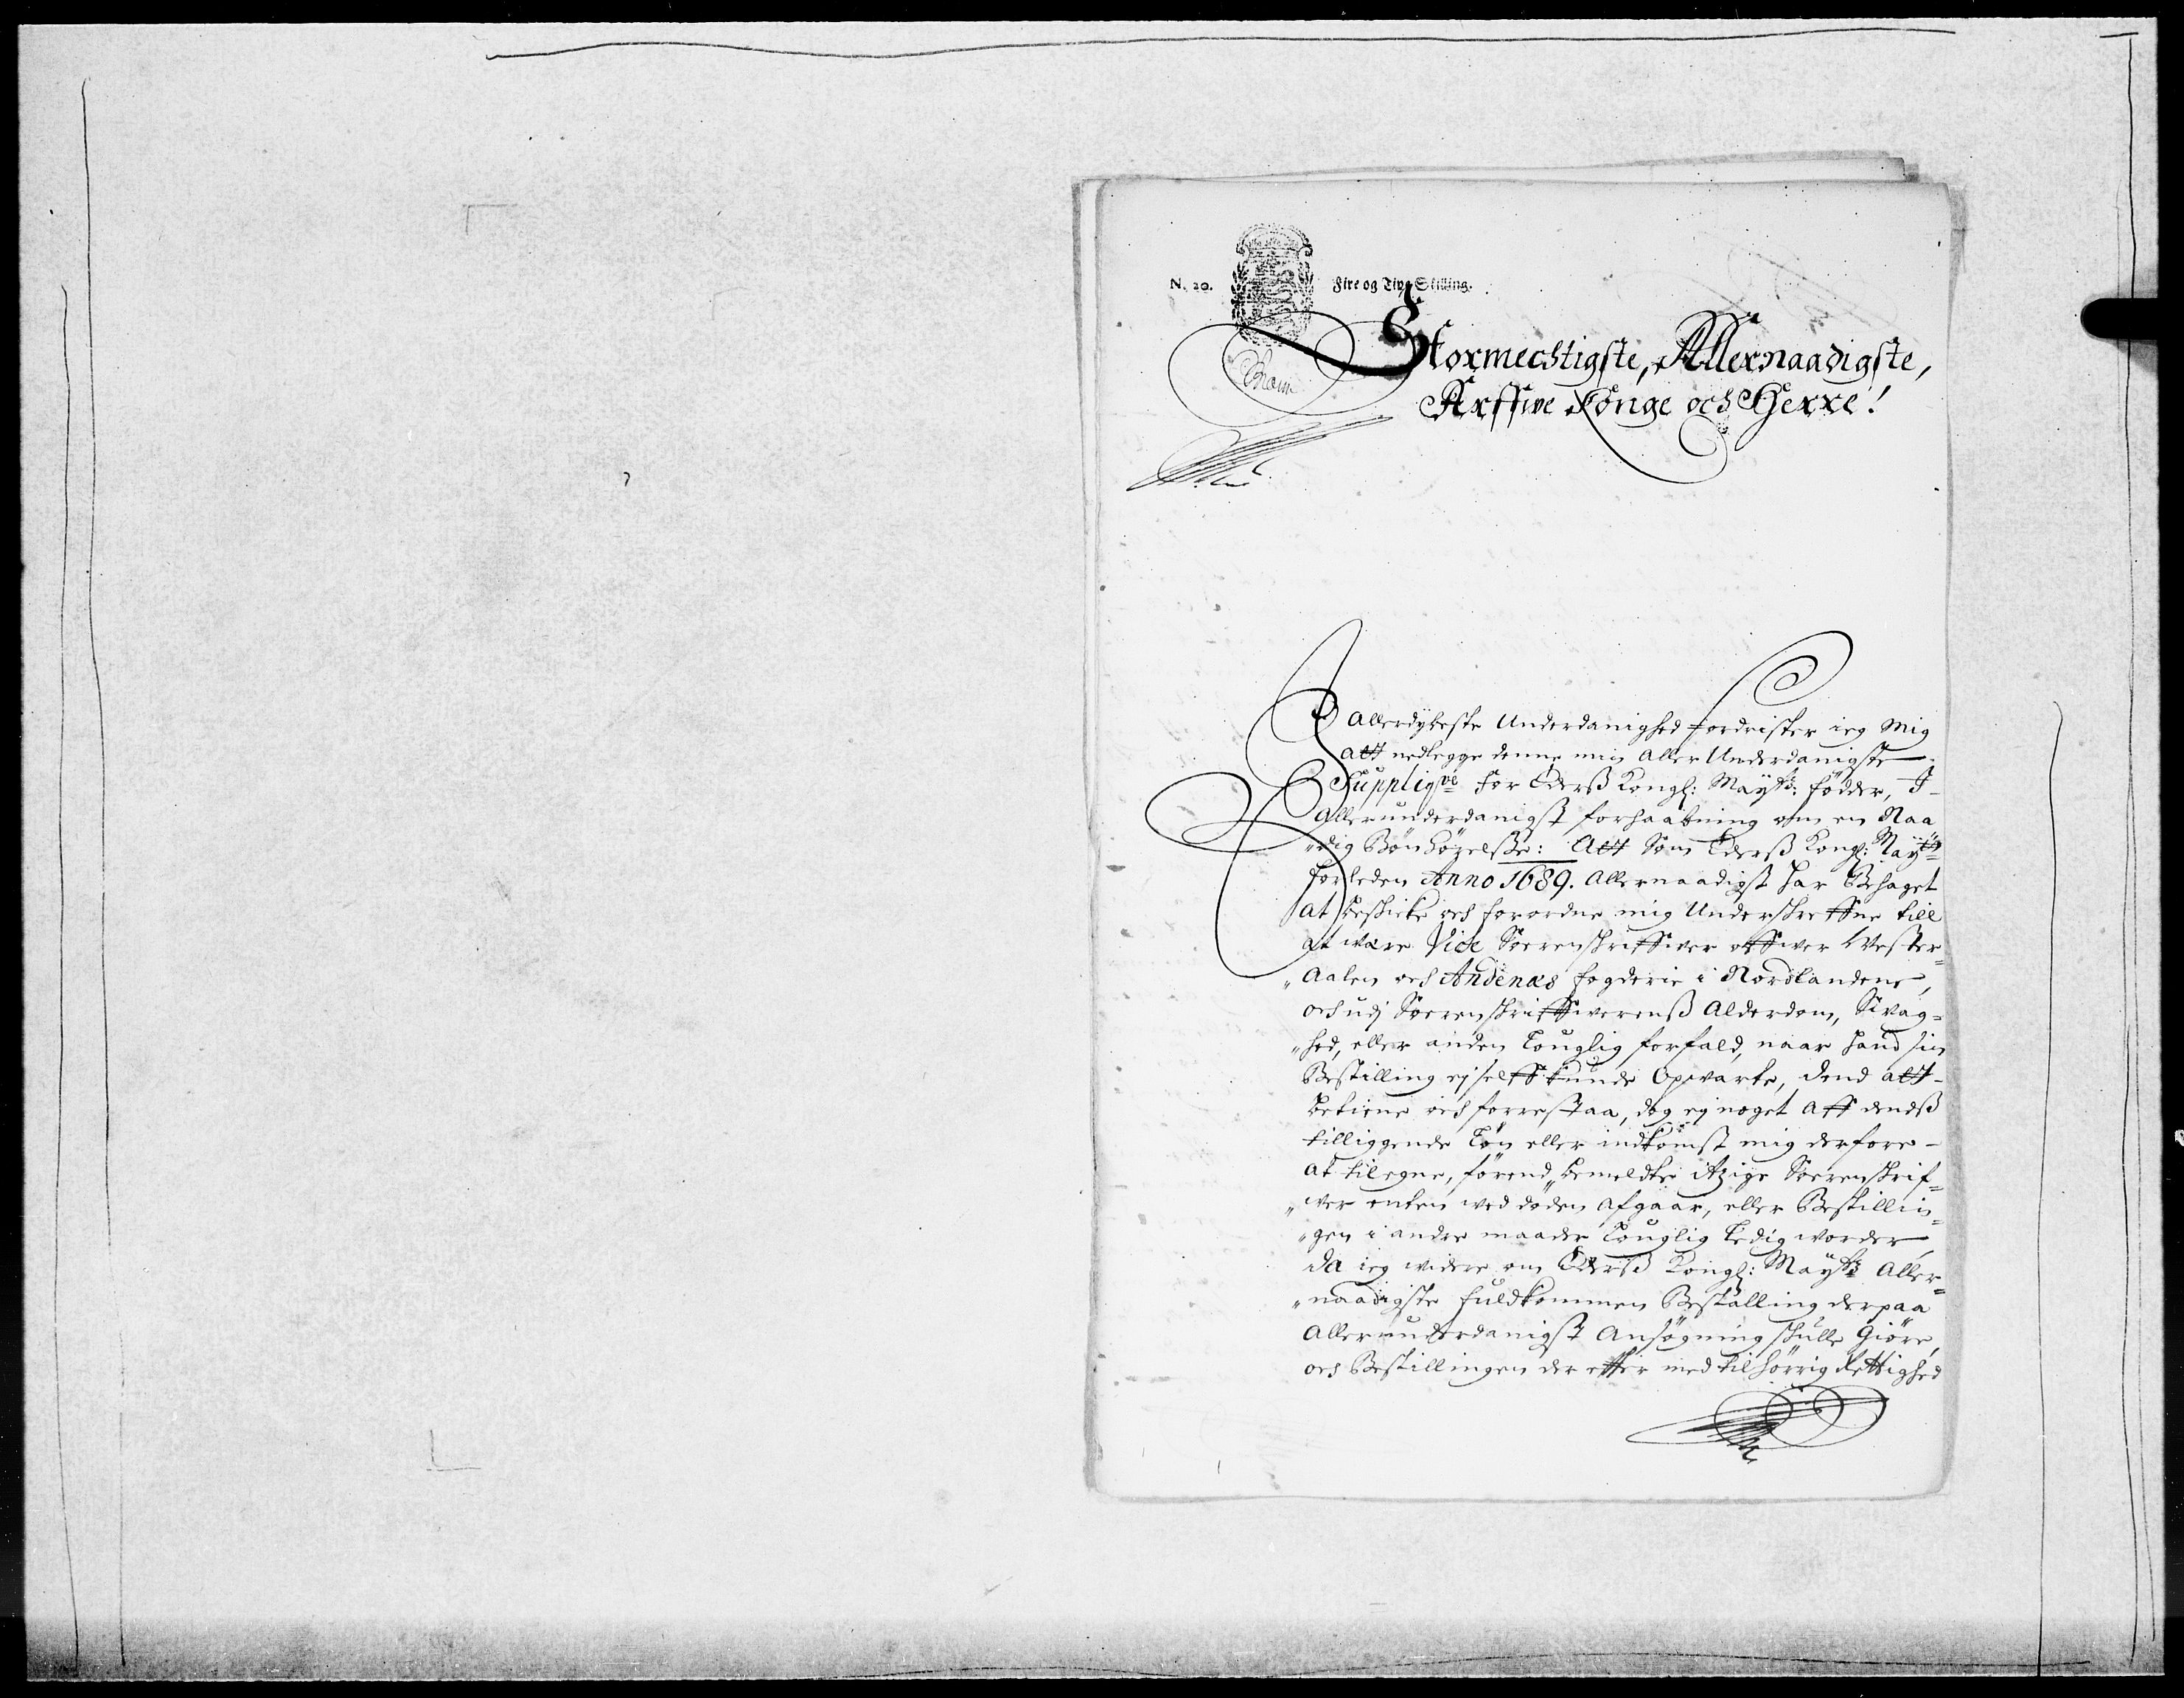 N. 20. Fire og Tive Skilling.
Stormechtigste, Allernaadigste,
Arffwe Konge och Herre!
Allerdybeste Underdanighed fordrister ieg Mig
att nedlegge denne min Aller Underdanigste
Suppliqve for Ederß Kongl: Maytz: födder, I
allerunderdanigst forhaabning om en Naa
„dig Bönhörelsße: Att Som Ederß Kongl: Maytz
forleden Anno 1689. Allernaadigst har Behaget
at beskicke och forordne mig Underskreffne till
at være Vice Sorenskriffwer offwer Wester=
„Aalen och Andenæs fogderie i Nordlandene,
och udj Sorenskriffwerenß Alderdom, Swag=
„hed, eller anden Louglig forfald, naar hand sin
Bestilling ej self kunde Opwarte, dend att
betiene och forrestaa, dog ej noget Aff dendß
tilliggende Løn eller indkomst mig derfore
at tilegne, förend bemeldte itzige Sorenskrif=
„wer enten ved döden afgaar, eller Bestillin=
„gen i andre maader Louglig Ledig worder,
da ieg widere om Ederß Kongl: Maytz Aller=
„naadigste fuldkommen Bestalling derpaa
Allerunderdanigst Ansögning skulle Giöre,
och Bestillingen der effter med tilhörrig Rettighed